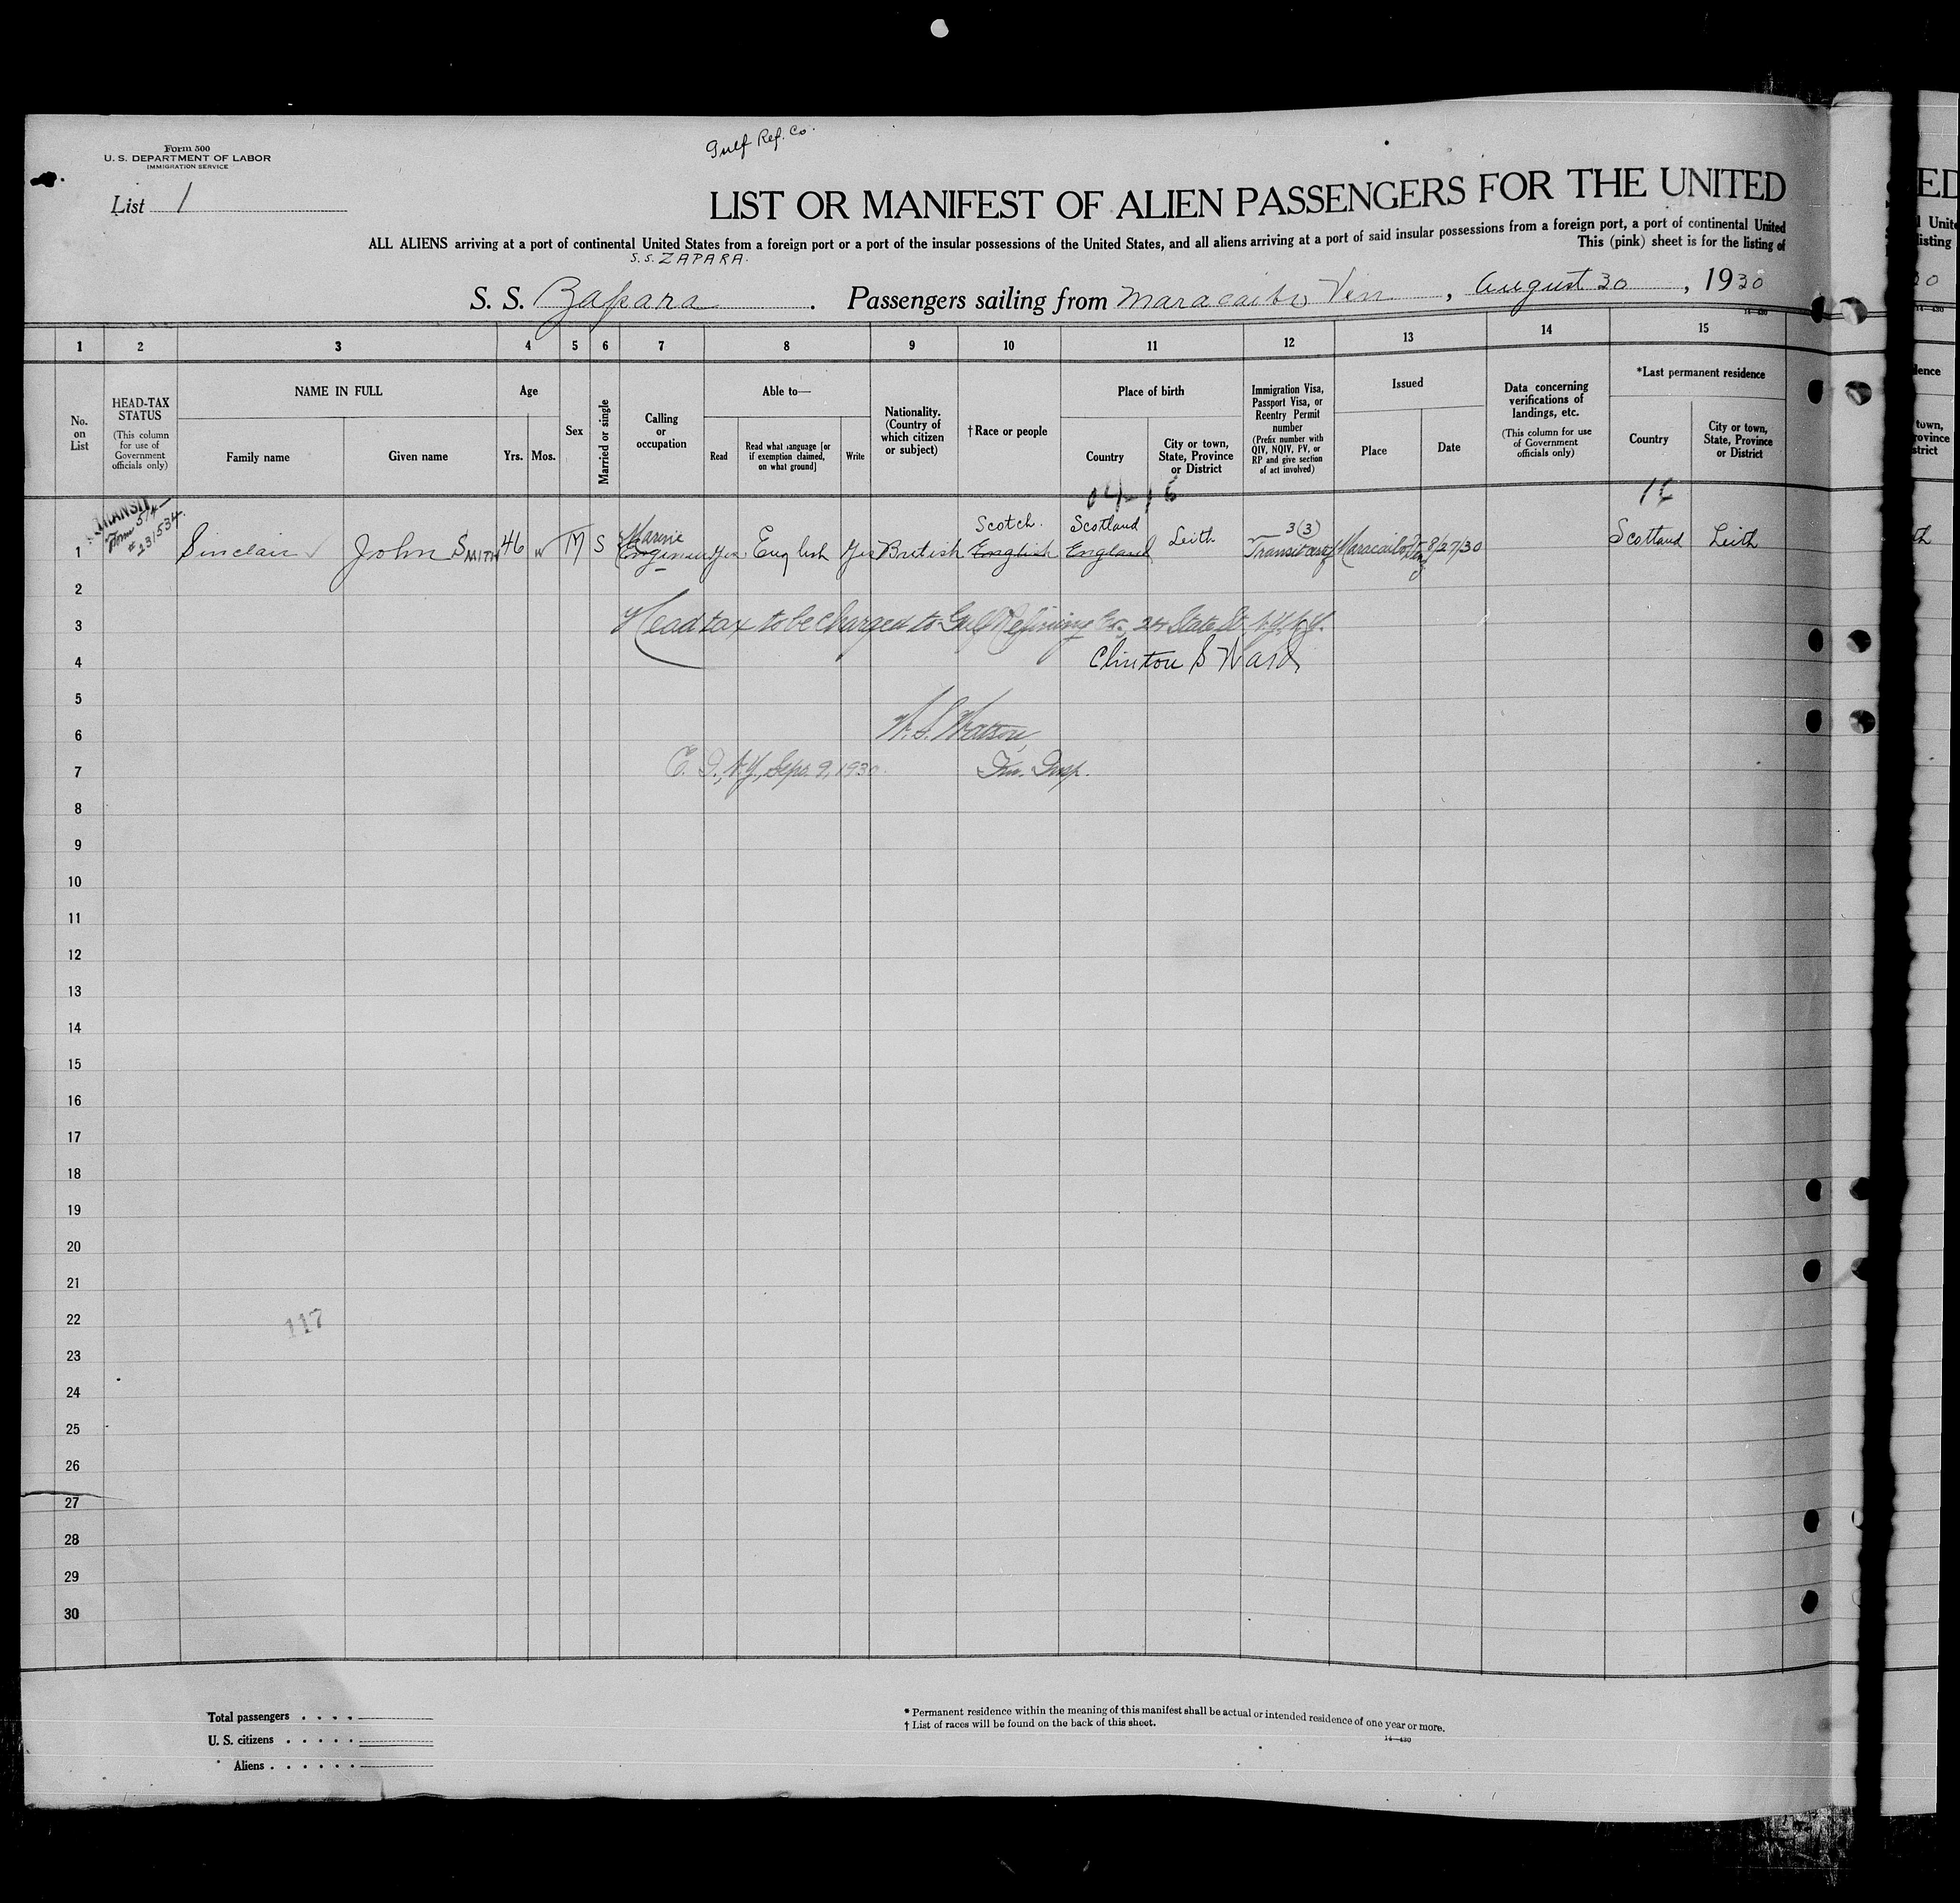 Gulf Ref. Co.
Form 500
U. S. DEPARTMENT OF LABOR
IMMIGRATION SERVICE
List 1
LIST OR MANIFEST OF ALIEN PASSENGERS FOR THE UNITED
ALL ALIENS arriving at a port of continental United States from a foreign port or a port of the insular possessions of the United States, and all aliens arriving at a port of said insular possessions from a foreign port, a port of continental United
This (pink) sheet is for the listing of
S.S. ZAPARA.
S. S. Zapara . Passengers sailing from Maracaibo Ven , August 30 , 1930
14—430
1 2 3 4 5 6 7 8 9 10 11 12 13 14 15
No. on List
HEAD-TAX STATUS
(This column for use of Government officials only)
NAME IN FULL
Family name
Given name
Age
Yrs. Mos.
Sex
Married or single
Calling or occupation
Able to—
Read
Read what language [or if exemption claimed, on what ground]
Write
Nationality. (Country of which citizen or subject)
†Race or people
Place of birth
Country
City or town, State, Province or District
Immigration Visa, Passport Visa, or Reentry Permit number
(Prefix number with QIV, NQIV, PV, or RP and give section of act involved)
Issued
Place
Date
Data concerning verifications of landings, etc.
(This column for use of Government officials only)
*Last permanent residence
Country
City or town, State, Province or District
TRANSIT
Form 514
#231534
Marine Scotch. Scotland 3(3)
1 Sinclair John SMITH 46 M S Engineer Yes English Yes British English England Leith Transit Maracaibo Ven 8/27/30 Scotland Leith
2
3 Head tax to be charged to Gulf Refining Co., 24 State St. N.Y. N.Y.
4 Clinton S Ward
5
6 W. S. Watson,
7 E. I., N.Y., Sept. 9, 1930. Im. Insp.
8
9
10
11
12
13
14
15
16
17
18
19
20
21
22
117
23
24
25
26
27
28
29
30
Total passengers
U. S. citizens
Aliens
* Permanent residence within the meaning of this manifest shall be actual or intended residence of one year or more.
† List of races will be found on the back of this sheet.
14—430